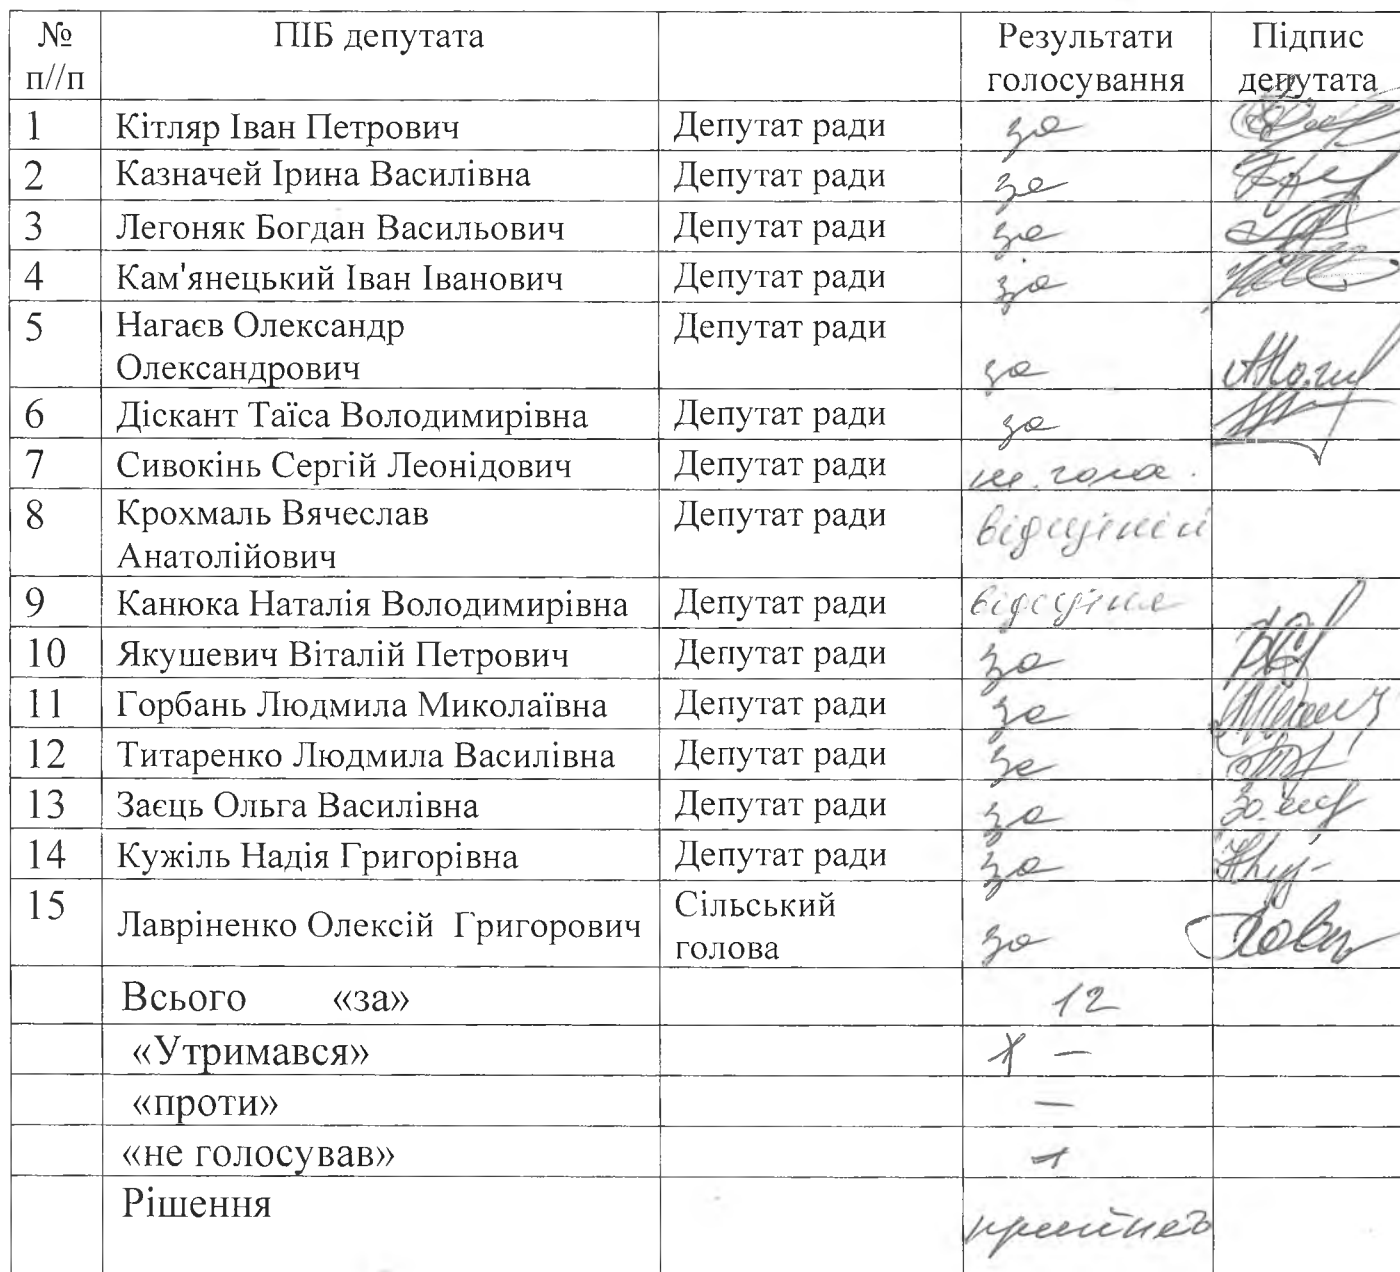 № п//п ПІБ депутата Результати голосування Підпис депутата
1 Кітляр Іван Петрович Депутат ради за
2 Казначей Ірина Василівна Депутат ради за
3 Легоняк Богдан Васильович Депутат ради за
4 Кам'янецький Іван Іванович Депутат ради за
5 Нагаєв Олександр Олександрович Депутат ради за
6 Діскант Таїса Володимирівна Депутат ради за
7 Сивокінь Сергій Леонідович Депутат ради не голос.
8 Крохмаль Вячеслав Анатолійович Депутат ради відсутній
9 Канюка Наталія Володимирівна Депутат ради відсутня
10 Якушевич Віталій Петрович Депутат ради за
11 Горбань Людмила Миколаївна Депутат ради за
12 Титаренко Людмила Василівна Депутат ради за
13 Заєць Ольга Василівна Депутат ради за
14 Кужіль Надія Григорівна Депутат ради за
15 Лавріненко Олексій Григорович Сільський голова за
Всього «за» 12
«Утримався» –
«проти» –
«не голосував» 1
Рішення прийнято